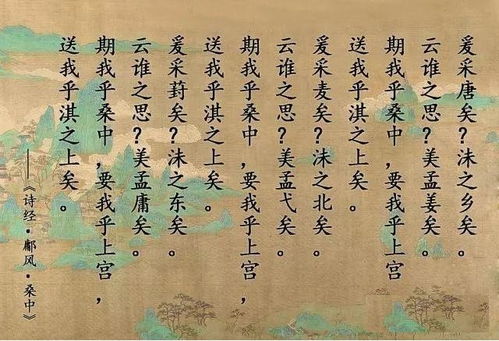 爰采唐矣?沬之乡矣。
云谁之思?美孟姜矣。
期我乎桑中,要我乎上宫
送我乎淇之上矣。
爰采麦矣?沬之北矣。
云谁之思?美孟弋矣。
期我乎桑中,要我乎上宫,
送我乎淇之上矣。
爰采葑矣?沬之东矣。
云谁之思?美孟庸矣。
期我乎桑中,要我乎上宫,
送我乎淇之上矣。
——《诗经·鄘风·桑中》